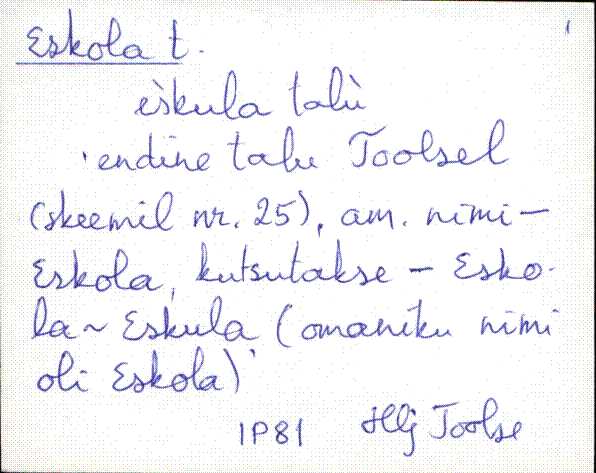 Eskola t.
èskula talù
'endine talu Toolsel
(skeemil nr. 25), am. nimi –
Eskola, kutsutakse – Esko-
la ~ Eskula (omaniku nimi
oli Eskola)'
IP81 Hlj Toolse